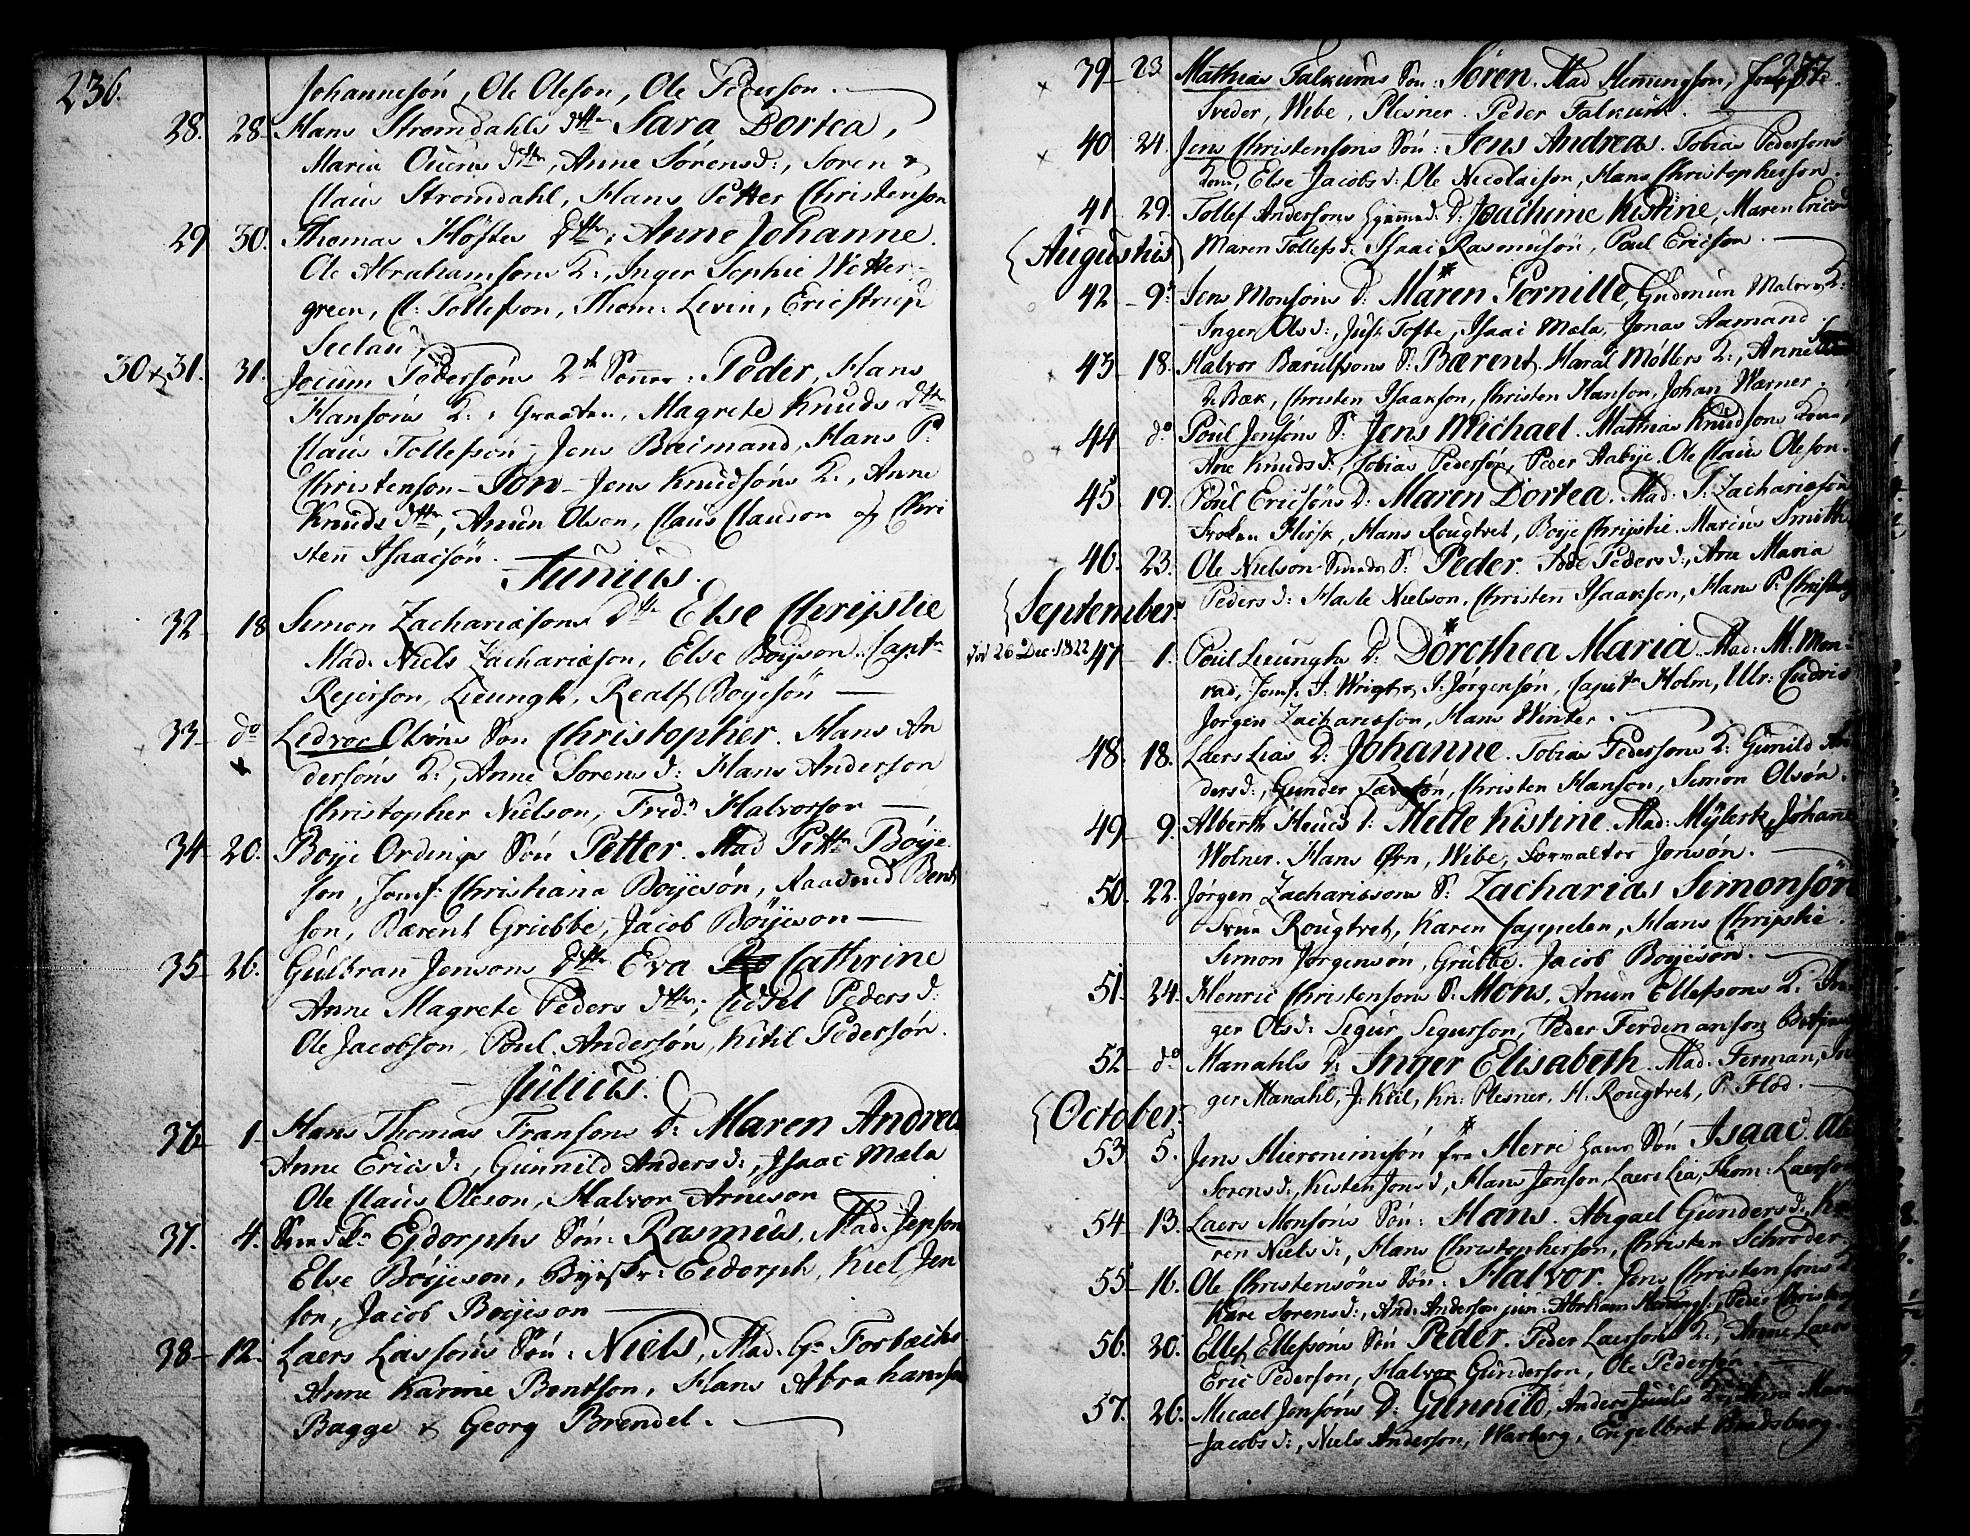 236.
Johannesön, Ole Oleson, Ole Pederson.
28. 28. Hans Stromdahls dttr Sara Dortea,
Maria Ouens dttr, Anne Sörensd:, Soren &
Claus Stromdahl, Hans Petter Christenson
29 30. Thomas Höftes dttr: Anne Johanne.
Ole Abrahamsons K:, Inger Sophie Wetter-
green, Cl: Tollefson, Thom: Levin, Eric Strup
30 & 31. 31. Jocum Pedersöns 2de Sönner: Peder, Hans
Hansöns K:, Magrete Knuds dttr
Claus Tollefson, Jens Baimand, Hans P:
Christenson - Jon - Jens Knudsöns K:, Anne
Knuds dttr, Anun Olson, Claus Clauson og Chri
sten Isaacsön.
Junius.
32 18 Simon Zachariasons Dttr Else Chrijstie
Mad. Niels Zachariason, Else Boyson. Captn
Rejerson, Lieungh, Realf Boyesön
33 do Ledvor Olsöns Sön Christopher. Hans An
dersöns K:, Anne Sorensd: Hans Anderson
Christopher Nielson, Fredr Halvorson
34 20. Boye Ordings Sön Petter. Mad Pettr Böye
son, Jomf: Christiana Boyesön, Aaavud Bent
son, Bærent Grubbe, Jacob Boyeson
35 26. Gulbran Jensons dttr Eva Cathrine
Anne Magrete Peders dttr, Lidtel Peders d:
Ole Jacobson, Poul Andersön, Kitil Pedersön.
Julius.
36 1 Hans Thomas Fransons D: Maren Andrea
Anne Ericsd:, Gunnild Andersd:, Isaac Mæla
Ole Claus Oleson, Halvor Arneson
37. 4. Ejdorphs Sön: Rasmus, Mad: Jepson
Else Boyeson, Byesfr: Eidorph, Kiel Jen
son, Jacob Boyeson
38 12. Laers Lassöns Sön: Niels, Mad. G: Forbechs
Anne Karine Bentson, Hans Abrahamson
Bagge & Georg Brendel.
39 23 Mathias Falkums Sön: Sören. Mad Hemmingson, Jomf
Sveder, Wibe, Plesner. Peder Falkum.
40 24. Jens Christensons Sön: Jens Andreas. Tobias Pedersons
Kone, Else Jacobsd: Ole Nicolaison, Hans Christopherson.
41 29. Tollef Andersons D: Joachime Kistine, Maren Ericsd
Maren Tollefsd: Isaac Rasmuson, Paul Ericson
Augustus
42 9: Jens Monsöns D: Maren Pernille, Gudmun K:
Inger Olsd:, Just Tofte, Isaac Mæla, Jonas Aamand.
43 18. Halvor Barulfsons S: Bærent, Haral Möllers K:, Anne
Bæk, Christen Isaakson, Christen Hanson, Johan Warner.
44 do Poul Jensöns S: Jens Michael. Mathias Knudsons Kone,
Ane Knudsd:, Tobias Pedersön, Peder Aabye. Ole Claus Oleson.
45 19. Poul Ericsöns D: Maren Dortea. Mad: S: Zachariason
Froken Hirsk, Hans Rougtvet, Boye Chrijstie. Marcus Smith
46. 23. Ole Nielson S: Peder. Peders d:, Ana Maria
Peders d: Hasle Nielson, Christen Isaakson, Hans P: Christens
September
död 26 Dec 1822 47 1. Poul Lieunghs D: Dorothea Maria. Mad: M: Mon-
rad, Jomf: A: Wright, J: Jörgensön, Captn Holm, Ulr: Cudrio
Jorgen Zachariasson, Hans Winter.
48. 18. Laers Lias D: Johanne. Tobias Pedersons K: Gunild An
dersd:, Gunder Christen Hanson, Simon Olsön.
49 9. Alberth Heuch D: Mette Kistine. Mad: Mÿlerts, Johann
Wolner. Hans Örn, Wibe, Forvalter Jonsön.
50. 22. Jörgen Zachariasons S: Zacharias Simonsön
Frue Rougtvet, Karen Cappelen, Hans Chrijstie.
Simon Jörgensön, Grubbe. Jacob Boyeson.
51. 24. Henric Christensons S: Mons, Anun Ellefsons K: In
ger Olsd: Segur Segurson, Peder Ferdenanson
52 do Manahls D: Inger Elisabeth. Mad. Ferman, In
ger Manahl, J: Keil, Kn: Plesner, H: Rougtvet, P: Flod.
October.
53 5. Jens Hieronimusön fra Herre hans Sön Isaac.
Sorensd:, Kisten Jonsd, Hans Jonson, Laers Lia, Thom: Laerson
54 13. Laers Monsöns Sön: Hans. Abigael Gundersd: Ka
ren Nielsd:, Hans Christopherson, Christen Schröder
55 16. Ole Christensöns Sön: Halvor. Jens Christensons K
Kare Sorensd:, And: Anderson jun: Abraham Hemings:, Peder Christens
56. 20. Ellef Ellefsöns Sön Peder. Peder Laersons K:, Anne Laers
Eric Pederson, Halvor Gunderson, Ole Pedersön.
57. 26. Micael Jonsöns D: Gunnild, Anders Juuls Kone, Anna Maria
Jacobs d:, Niels Anderson, Warberg, Engelbret Bradsberg.